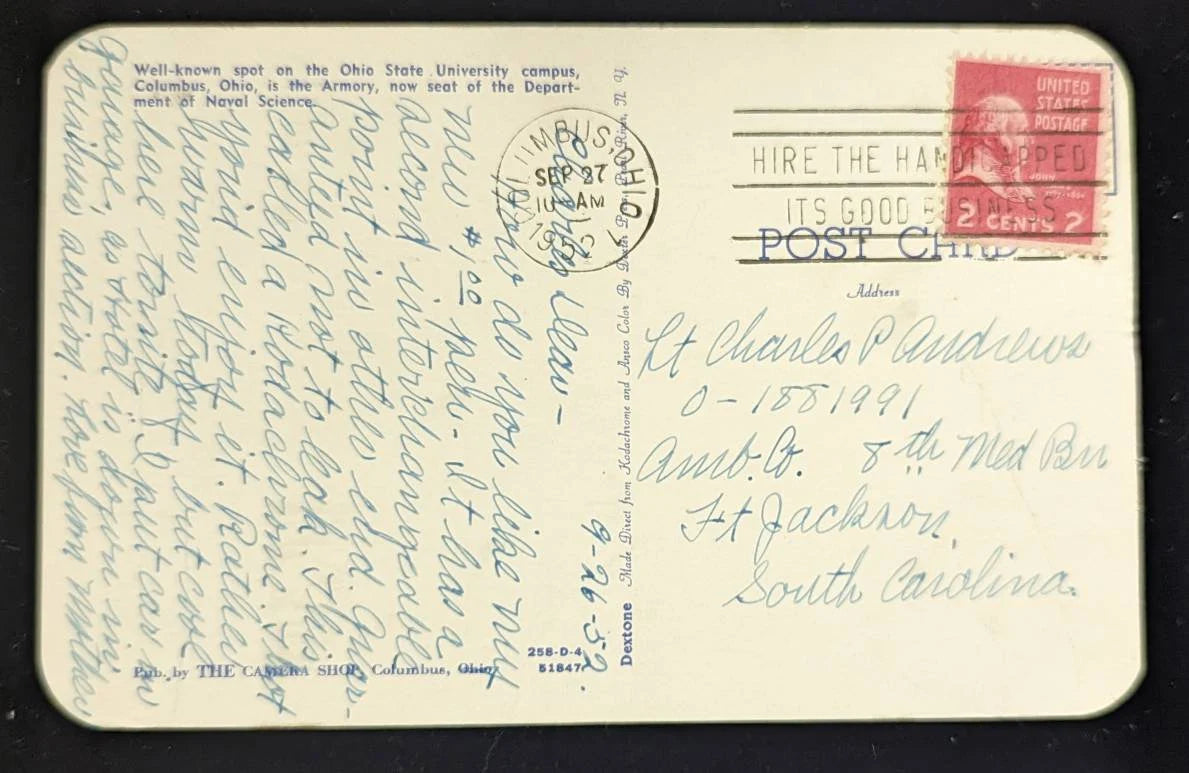 Well-known spot on the Ohio State University campus,
Columbus, Ohio, is the Armory, now seat of the Depart-
ment of Naval Science.
9-26-52.
Charles Dear -
How do you like my
new $1.00 pen - It has a
second interchangeable
point in other end. Guar-
anteed not to leak. This
is called a Kodachrome & thot
you'd enjoy it. Rather
warm today but cool
here tonite. I put car in
garage, as Hotel is down in
business section. Love from Mother
Pub. by THE CAMERA SHOP, Columbus, Ohio
258-D-4
51847
Dextone Made Direct from Kodachrome and Ansco Color By Dexter Press, Pearl River, N. Y.
COLUMBUS, OHIO
SEP 27
10 AM
1952
HIRE THE HANDICAPPED
ITS GOOD BUSINESS
UNITED
STATES
POSTAGE
JOHN
2 CENTS 2
POST CARD
Address
Lt Charles P Andrews
O-1881991
Amb. Co. 8th Med Bn
Ft Jackson,
South Carolina.